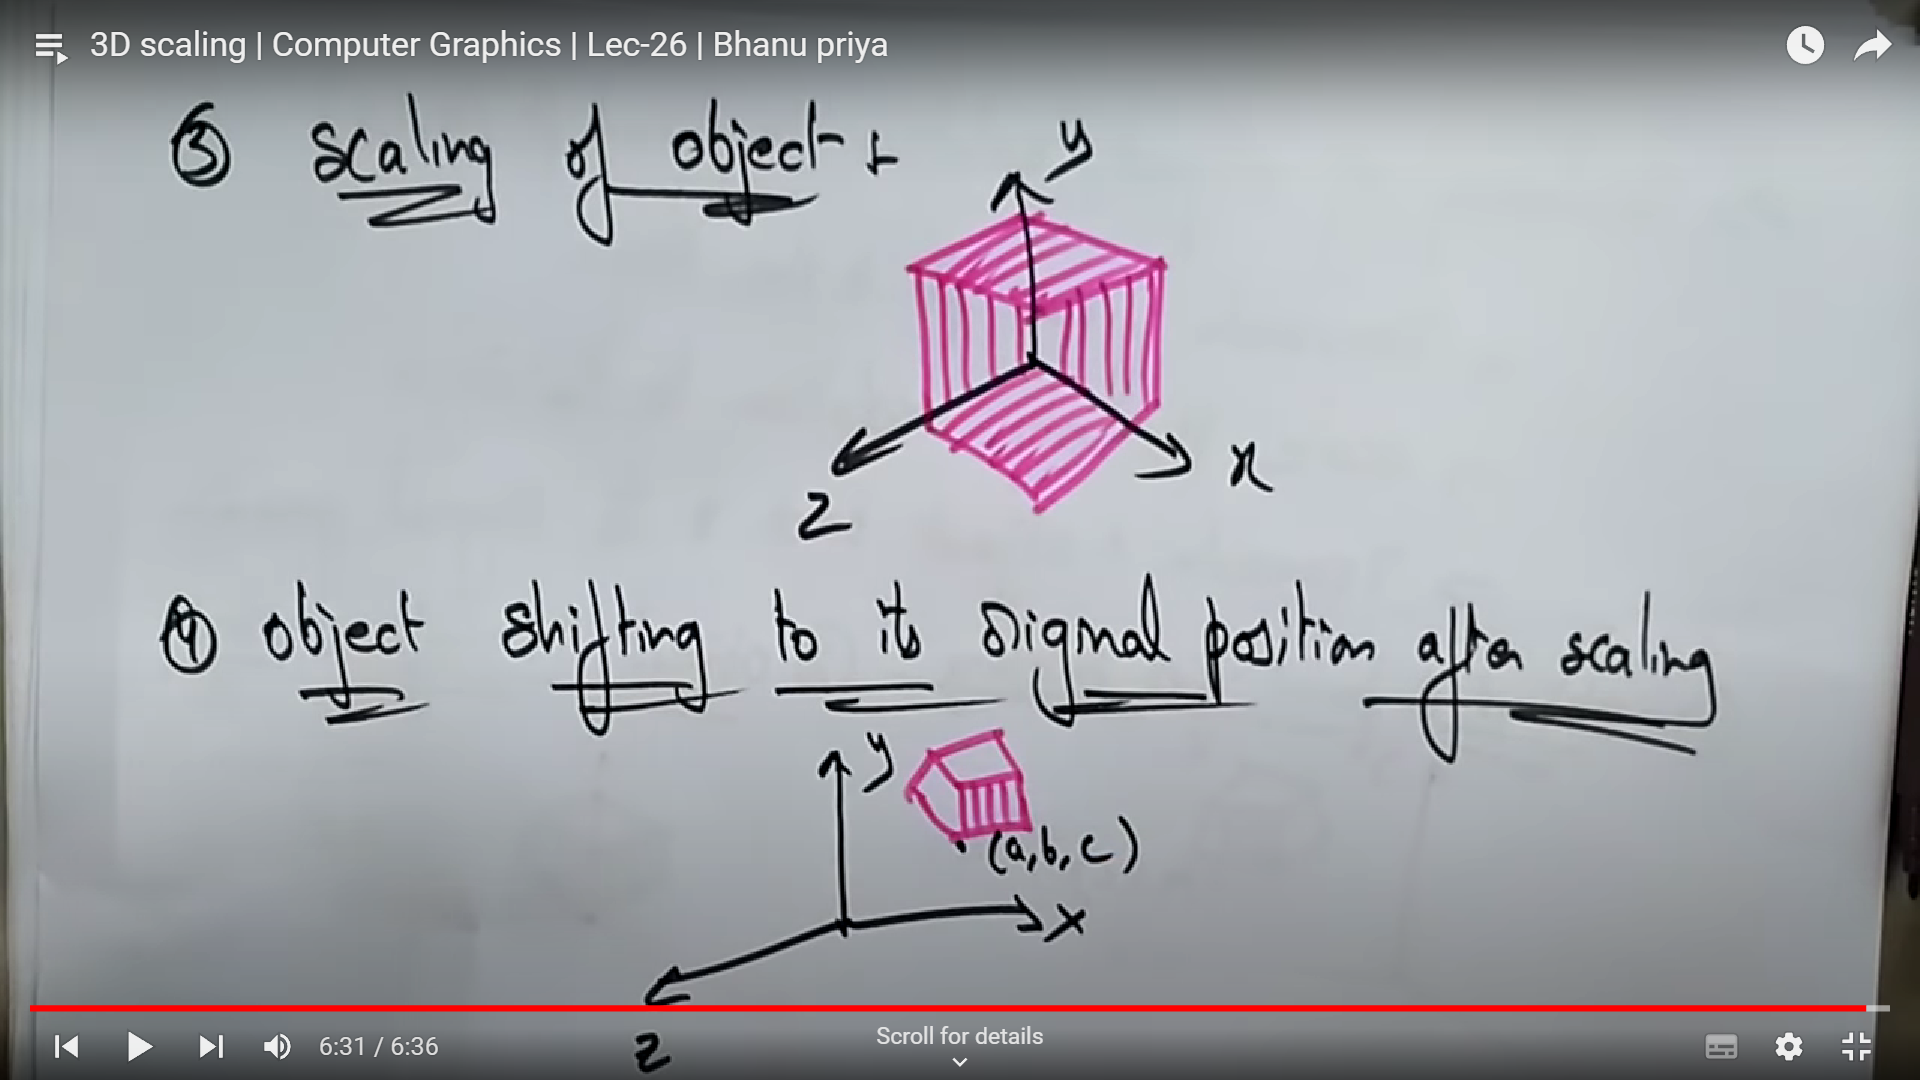 3D scaling | Computer Graphics | Lec-26 | Bhanu priya
③ scaling of object :-
y
x
z
④ object shifting to its original position after scaling
y
(a, b, c)
x
z
6:31 / 6:36
Scroll for details